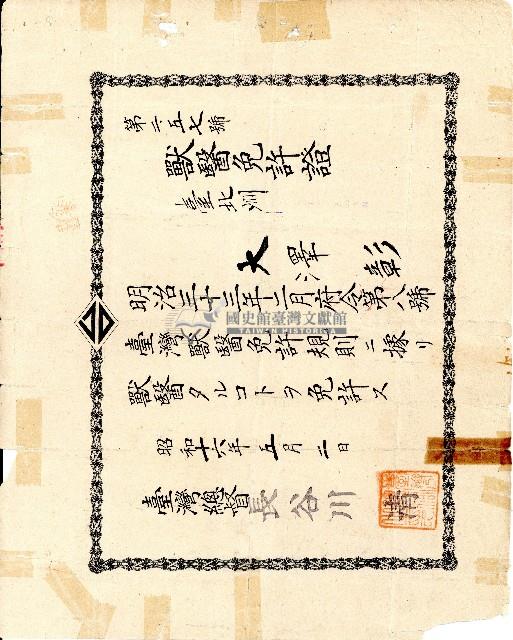 第二五七號
獸醫免許證
臺北州
大澤彰
明治三十三年十二月府令第八號
臺灣獸醫免許規則ニ據リ
獸醫タルコトヲ免許ス
昭和十六年五月二日
臺灣總督長谷川清
國史館臺灣文獻館
TAIWAN HISTORICA